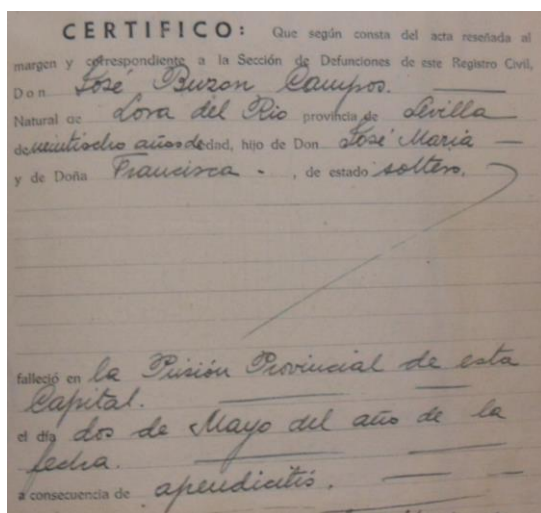 CERTIFICO: Que según consta del acta reseñada al
margen y correspondiente a la Sección de Defunciones de este Registro Civil,
Don José Buzon Campos.
Natural de Lora del Rio provincia de Sevilla
de veintiocho años de edad, hijo de Don José Maria
y de Doña Francisca . , de estado soltero.
falleció en la Prisión Provincial de esta
Capital.
el día dos de Mayo del año de la
fecha.
a consecuencia de apendicitis.